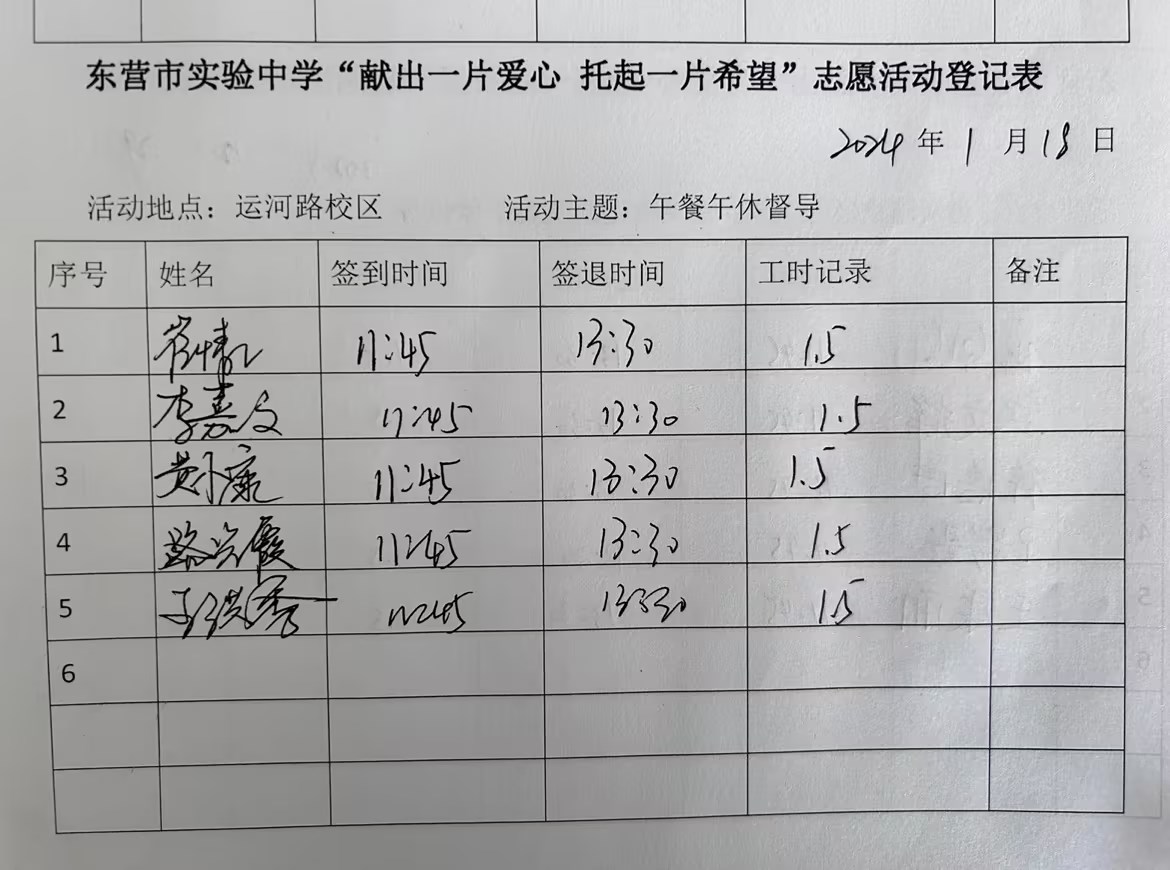 东营市实验中学“献出一片爱心 托起一片希望”志愿活动登记表
2024 年 1 月 18 日
活动地点：运河路校区 活动主题：午餐午休督导
序号 姓名 签到时间 签退时间 工时记录 备注
1 11:45 13:30 1.5
2 李嘉文 11:45 13:30 1.5
3 黄小康 11:45 13:30 1.5
4 11:45 13:30 1.5
5 11:45 13:30 1.5
6